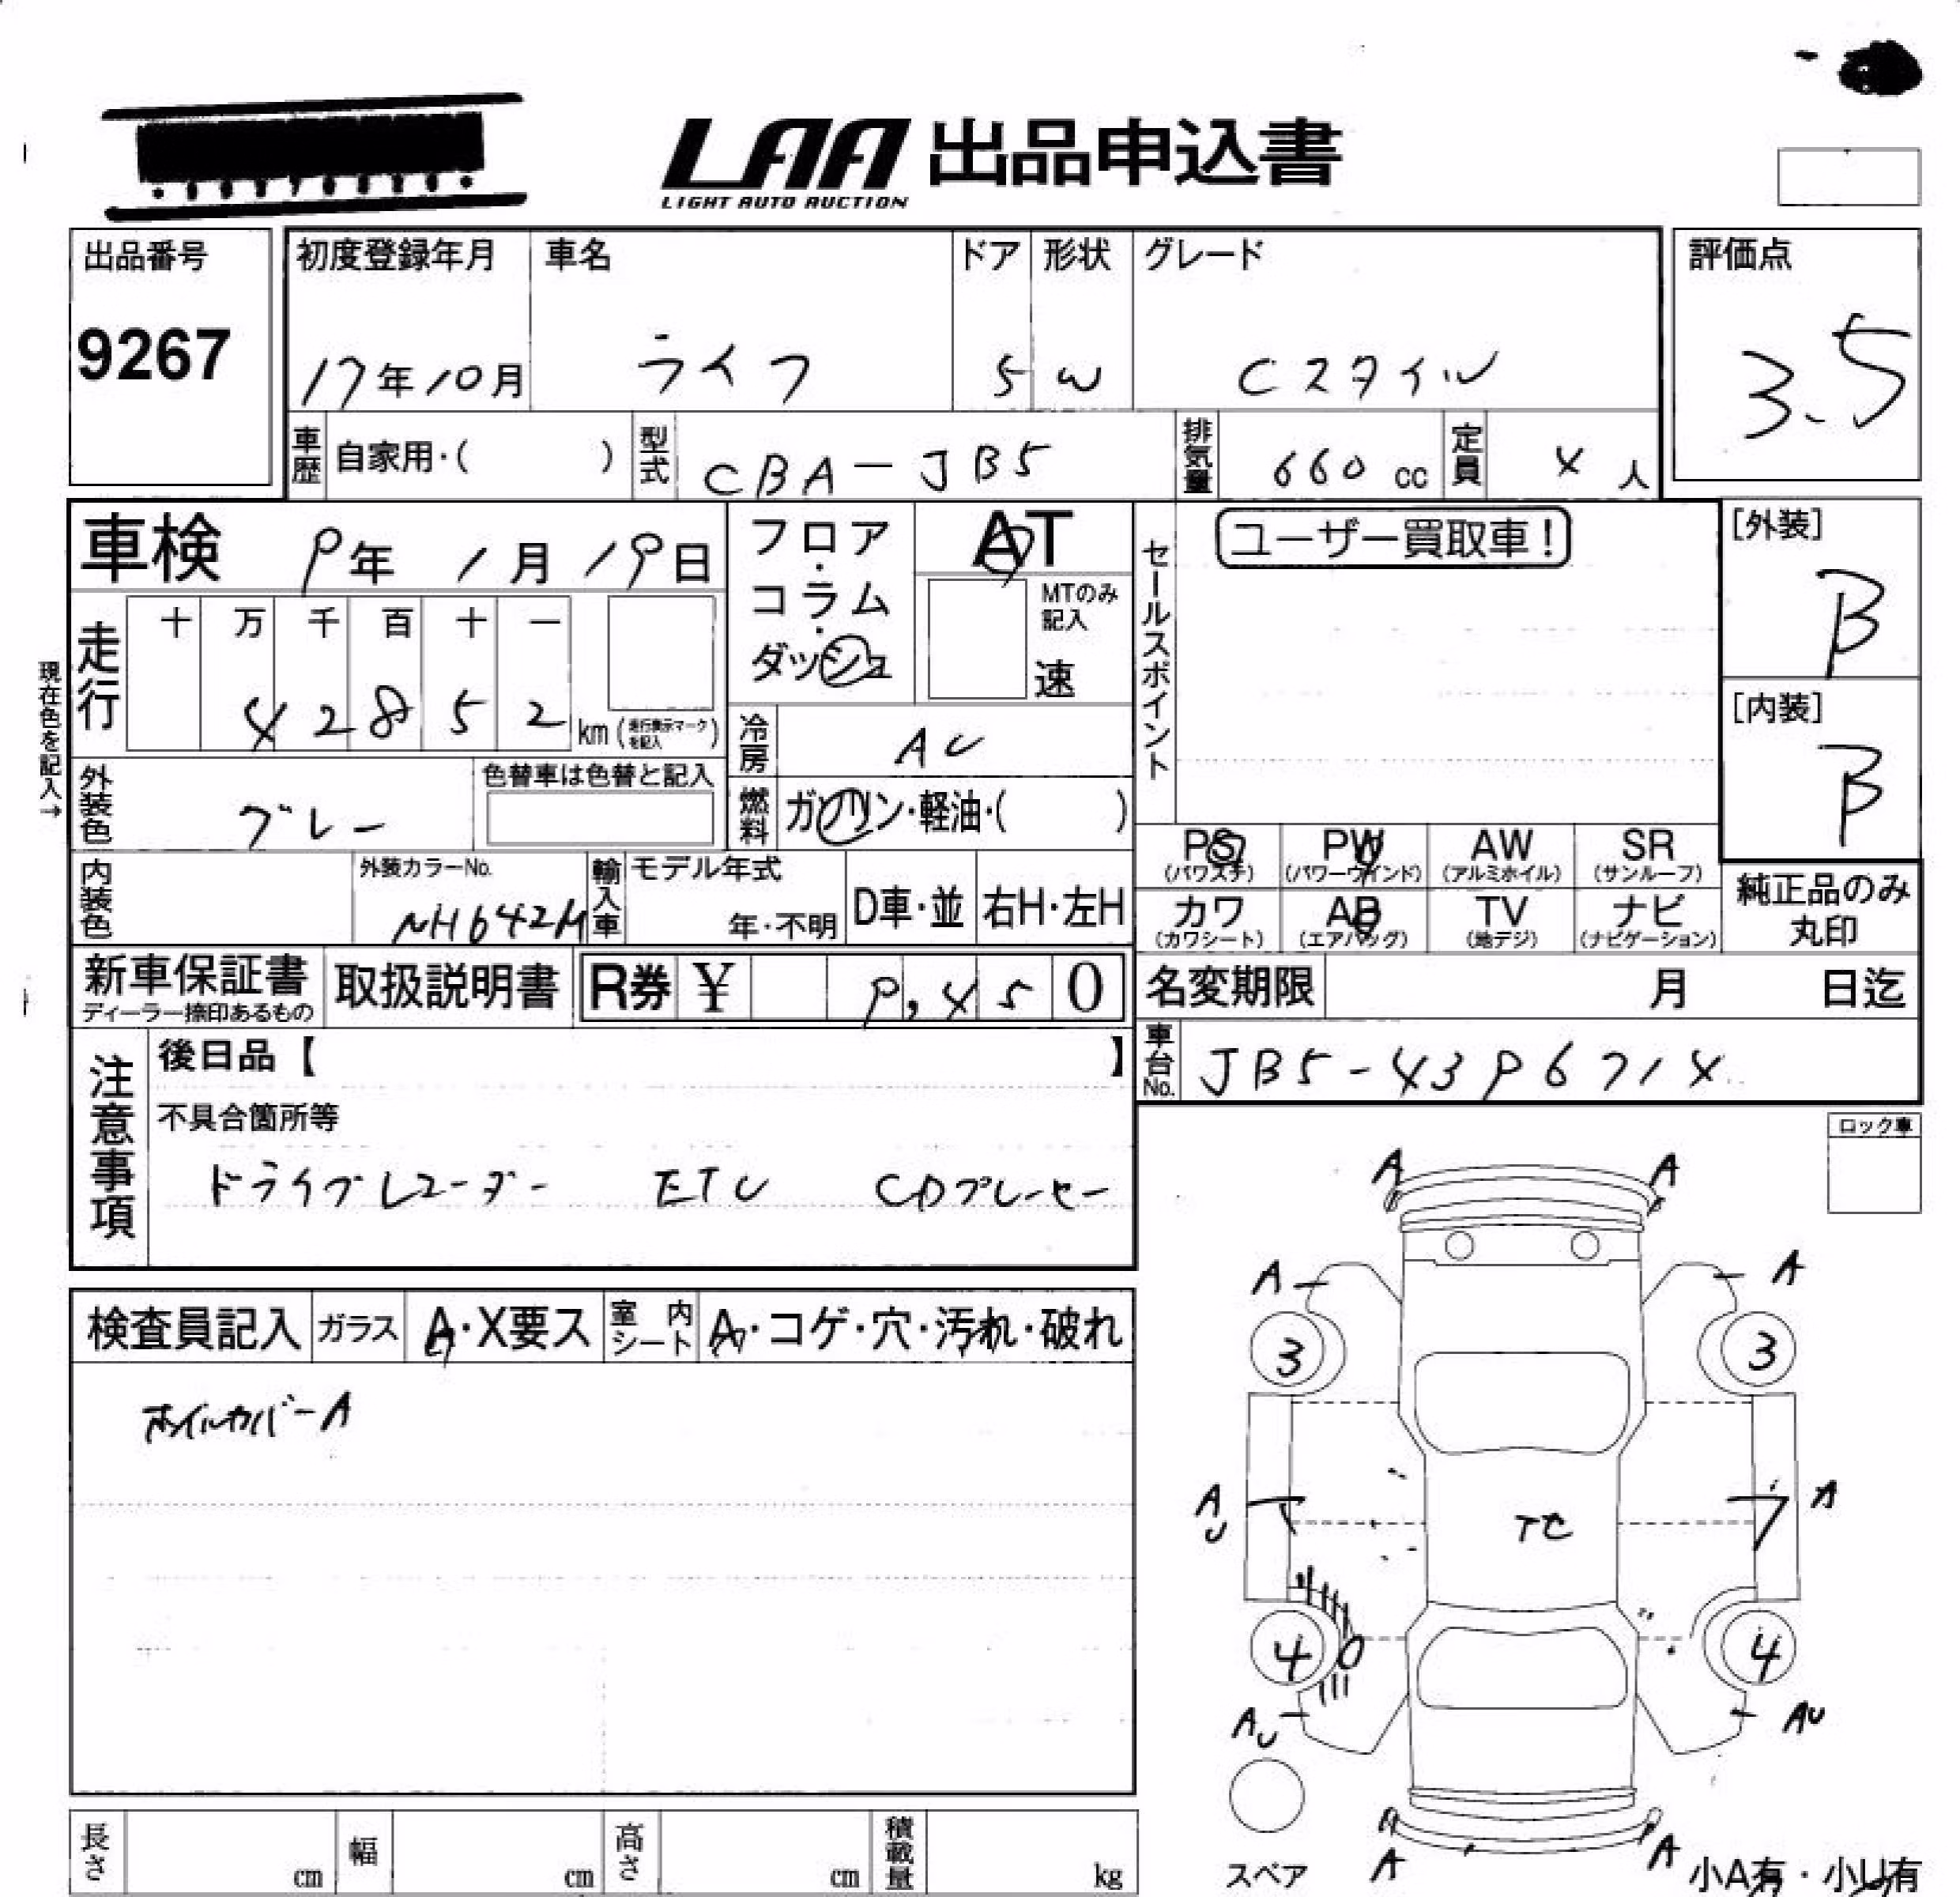 LAA 出品申込書
LIGHT AUTO AUCTION
出品番号
9267
初度登録年月
17年10月
車名
ライフ
ドア
5
形状
W
グレード
Cスタイル
評価点
3.5
車歴 自家用・( )
型式 CBA-JB5
排気量 660 cc
定員 4 人
車検 9年 1月 19日
現在色を記入→
走行
十 万 千 百 十 一
4 2 8 5 2 km (走行表示マークを記入)
フロア・コラム・ダッシュ
AT
MTのみ記入
速
冷房 AC
燃料 ガソリン・軽油・( )
セールスポイント
ユーザー買取車!
[外装]
B
[内装]
B
外装色 グレー
色替車は色替と記入
内装色
外装カラーNo.
NH642M
輸入車
モデル年式
年・不明
D車・並
右H・左H
PS (パワステ)
PW (パワーウインド)
AW (アルミホイル)
SR (サンルーフ)
カワ (カワシート)
AB (エアバッグ)
TV (地デジ)
ナビ (ナビゲーション)
純正品のみ
丸印
新車保証書
ディーラー捺印あるもの
取扱説明書
R券 ¥ 9,450
名変期限 月 日迄
車台No. JB5-4396714
注意事項
後日品【 】
不具合箇所等
ドライブレコーダー ETC CDプレーヤー
ロック車
検査員記入
ガラス A・X要ス
室内シート A・コゲ・穴・汚れ・破れ
ホイルカバーA
A A
A A
3 3
A U A
TC
4 4
AU AU
A A
スペア
小A有・小U有
長さ cm
幅 cm
高さ cm
積載量 kg